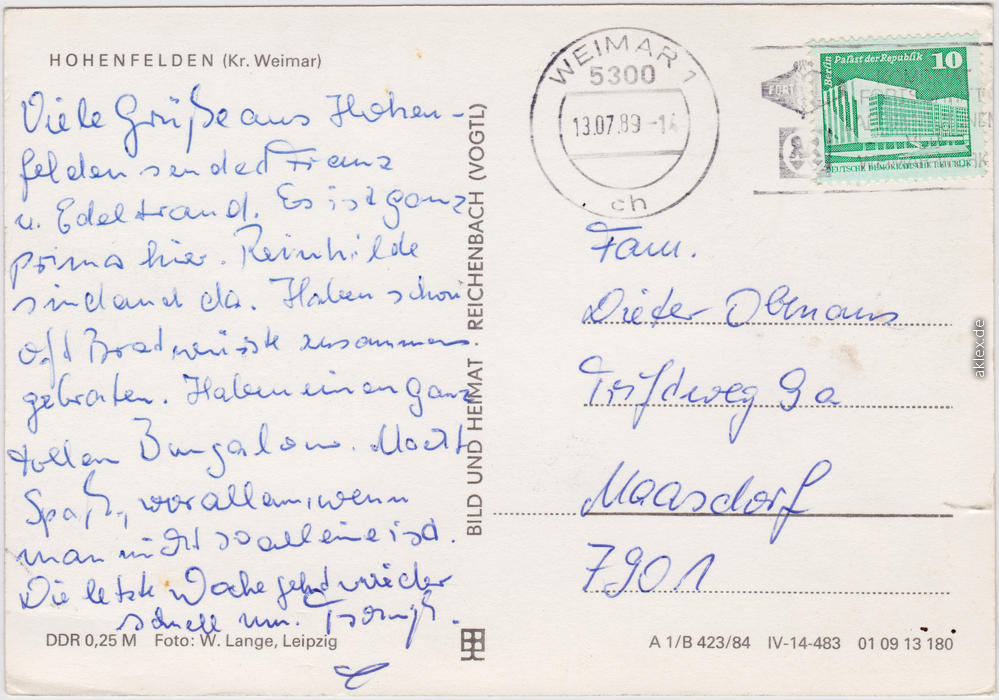 HOHENFELDEN (Kr. Weimar)
Viele Grüße aus Hohen-
felden sendet Franz
u. Edeltraud. Es ist ganz
prima hier. Reinhilde
sind auch da. Haben schon
oft Bratwürste zusammen
gebraten. Haben einen ganz
tollen Bungalow. Macht
Spaß, vor allem, wenn
man nicht so alleine ist.
Die letzte Woche geht wieder
schnell um.
DDR 0,25 M Foto: W. Lange, Leipzig
BILD UND HEIMAT REICHENBACH (VOGTL)
WEIMAR 1
5300
13.07.89-14
ch
Berlin Palast der Republik 10
DEUTSCHE DEMOKRATISCHE REPUBLIK
Fam.
Dieter Obenaus
Triftweg 9a
Maasdorf
7901
A 1/B 423/84 IV-14-483 01 09 13 180
aklex.de